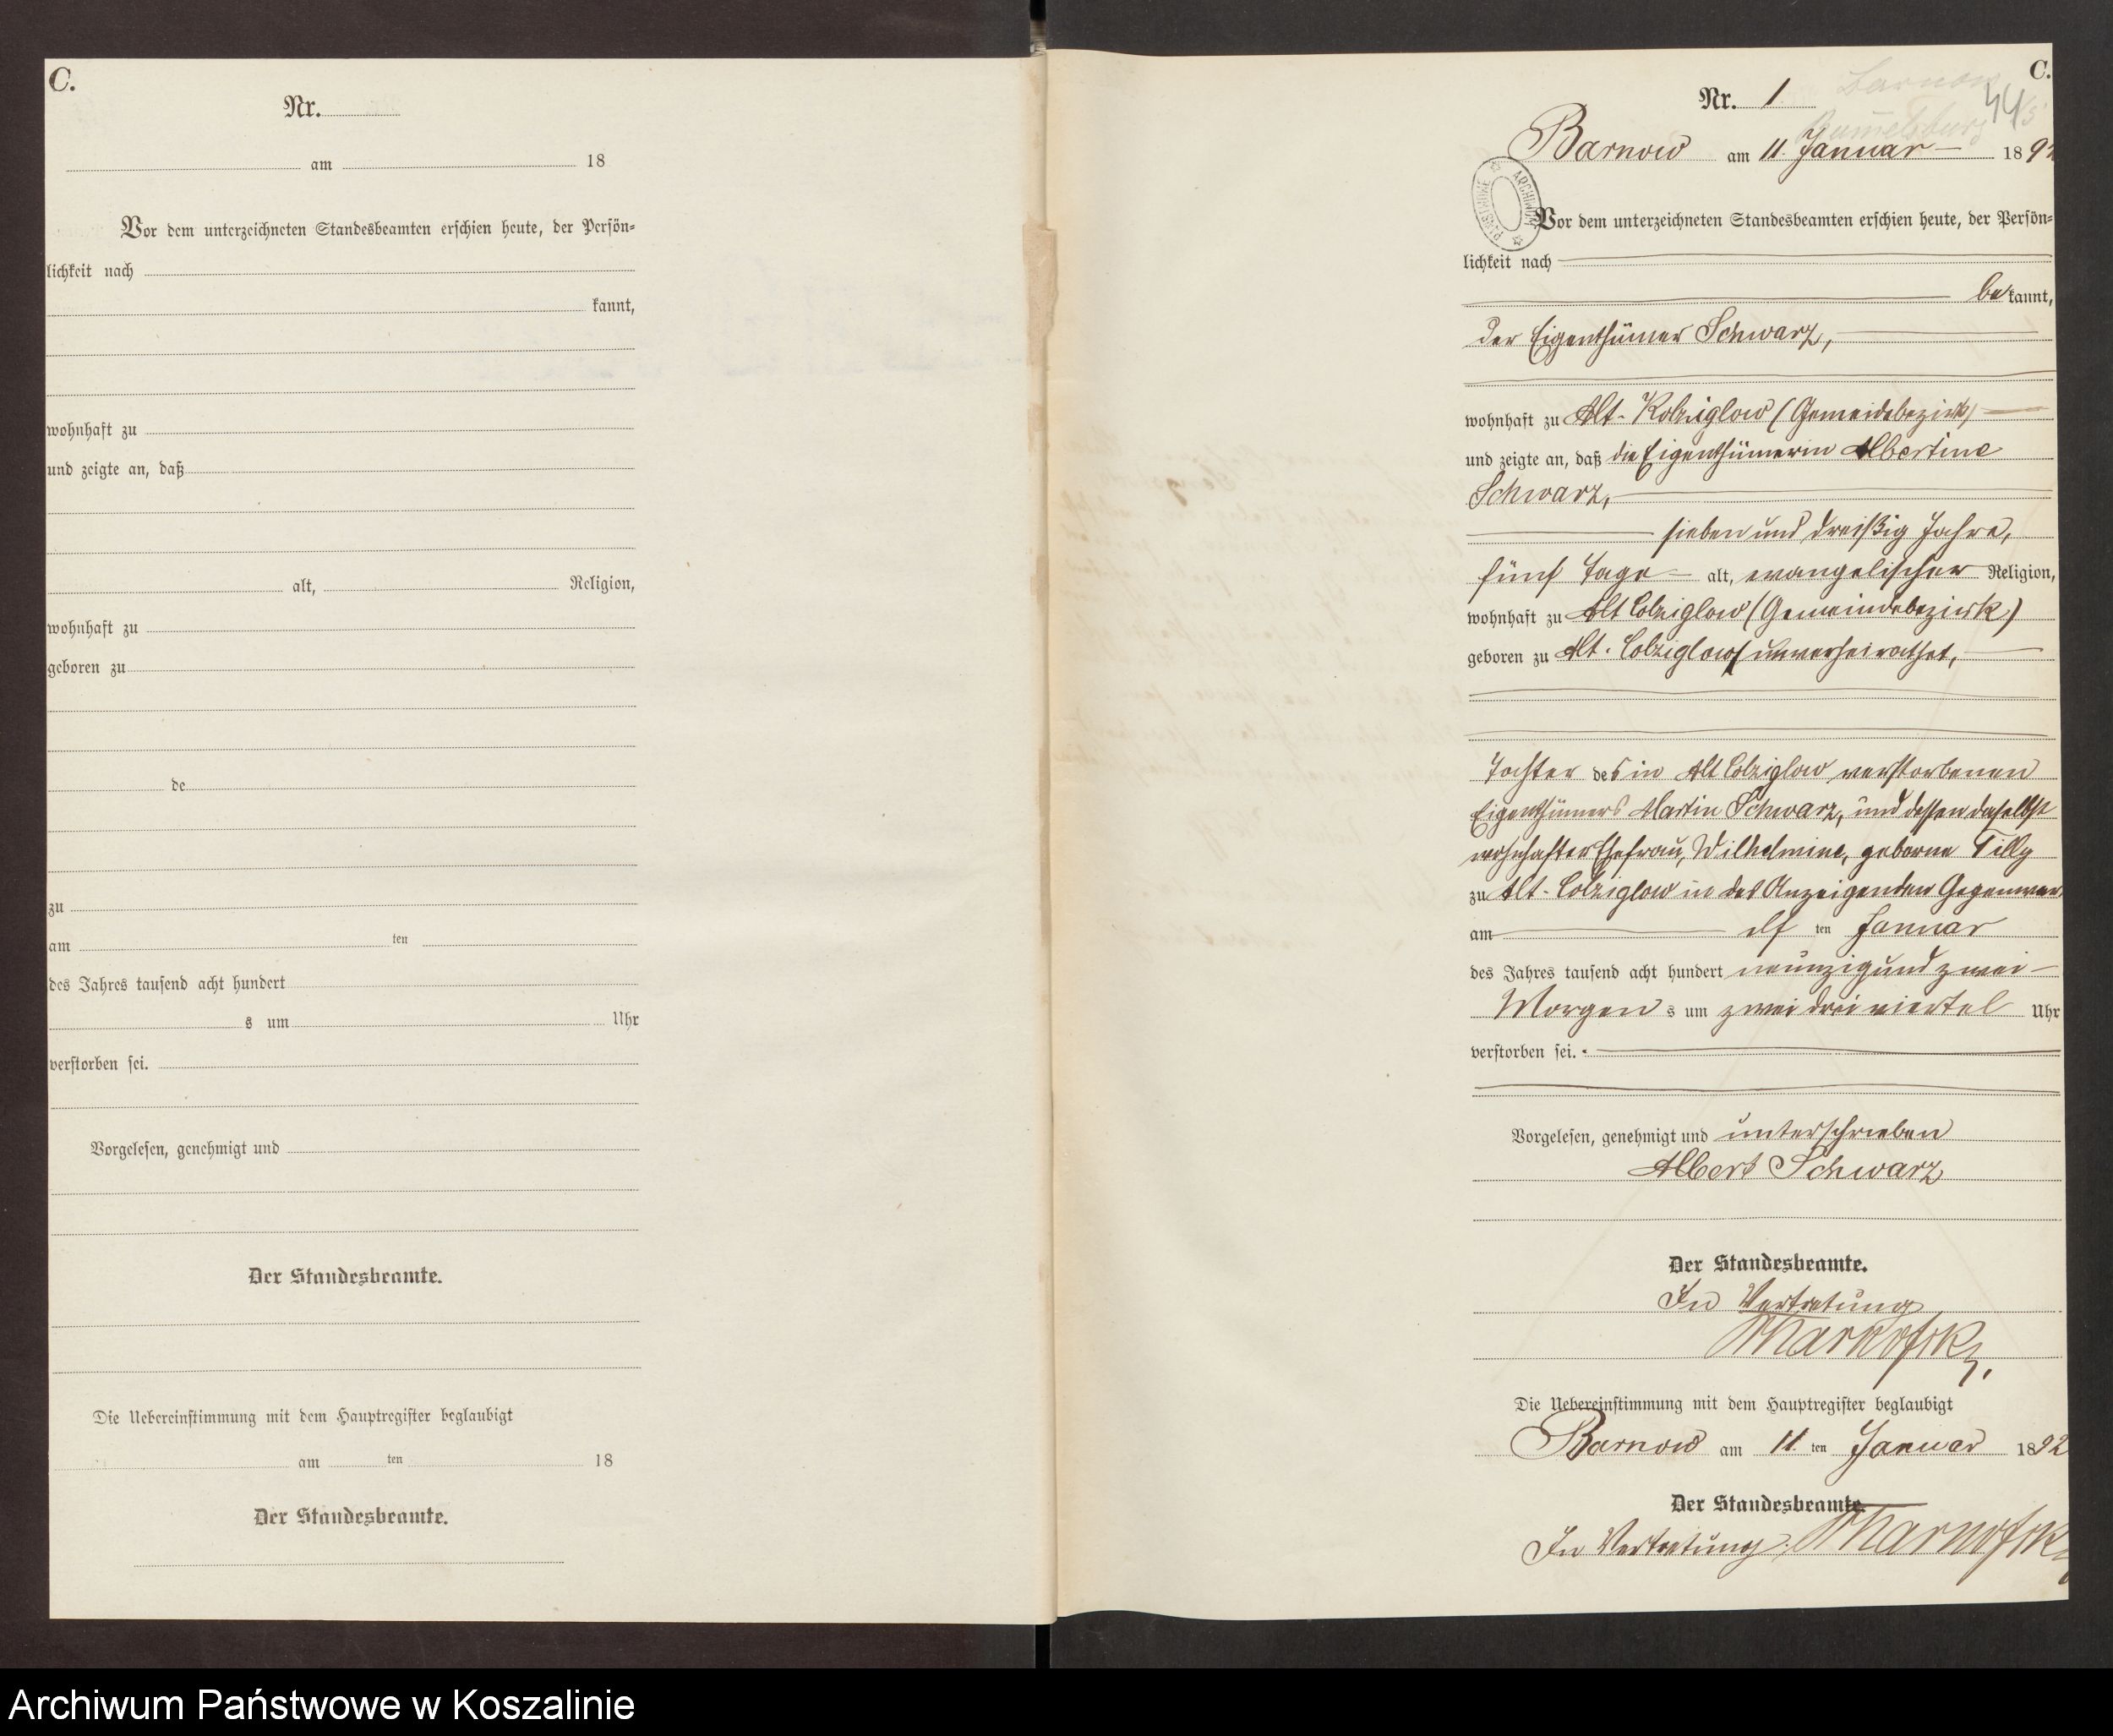 C.
Nr.
am 18
Vor dem unterzeichneten Standesbeamten erschien heute, der Persön-
lichkeit nach
kannt,
wohnhaft zu
und zeigte an, daß
alt, Religion,
wohnhaft zu
geboren zu
de
zu
am ten
des Jahres tausend acht hundert
s um Uhr
verstorben sei.
Vorgelesen, genehmigt und
Der Standesbeamte.
Die Uebereinstimmung mit dem Hauptregister beglaubigt
am ten 18
Der Standesbeamte.
C.
Barnow
Nr. 1
Rummelsburg
Barnow am 11. Januar 1892
ARCHIWUM PAŃSTWOWE
Vor dem unterzeichneten Standesbeamten erschien heute, der Persön-
lichkeit nach
bekannt,
der Eigenthümer Schwarz,
wohnhaft zu Alt-Kolziglow (Gemeindebezirk)
und zeigte an, daß die Eigenthümerin Albertine
Schwarz,
sieben und dreißig Jahre,
fünf Tage alt, evangelischer Religion,
wohnhaft zu Alt Colziglow (Gemeindebezirk)
geboren zu Alt-Colziglow, unverheirathet,
Tochter des in Alt Colziglow verstorbenen
Eigenthümers Martin Schwarz, und dessen daselbst
wohnhafter Ehefrau, Wilhelmine, geborne Tilly
zu Alt-Colziglow in des Anzeigenden Gegenwar
am elf ten Januar
des Jahres tausend acht hundert neunzig und zwei
Morgens um zwei drei viertel Uhr
verstorben sei.
Vorgelesen, genehmigt und unterschrieben
Albert Schwarz
Der Standesbeamte.
In Vertretung
Die Uebereinstimmung mit dem Hauptregister beglaubigt
Barnow am 11. ten Januar 1892
Der Standesbeamte.
In Vertretung.
Archiwum Państwowe w Koszalinie